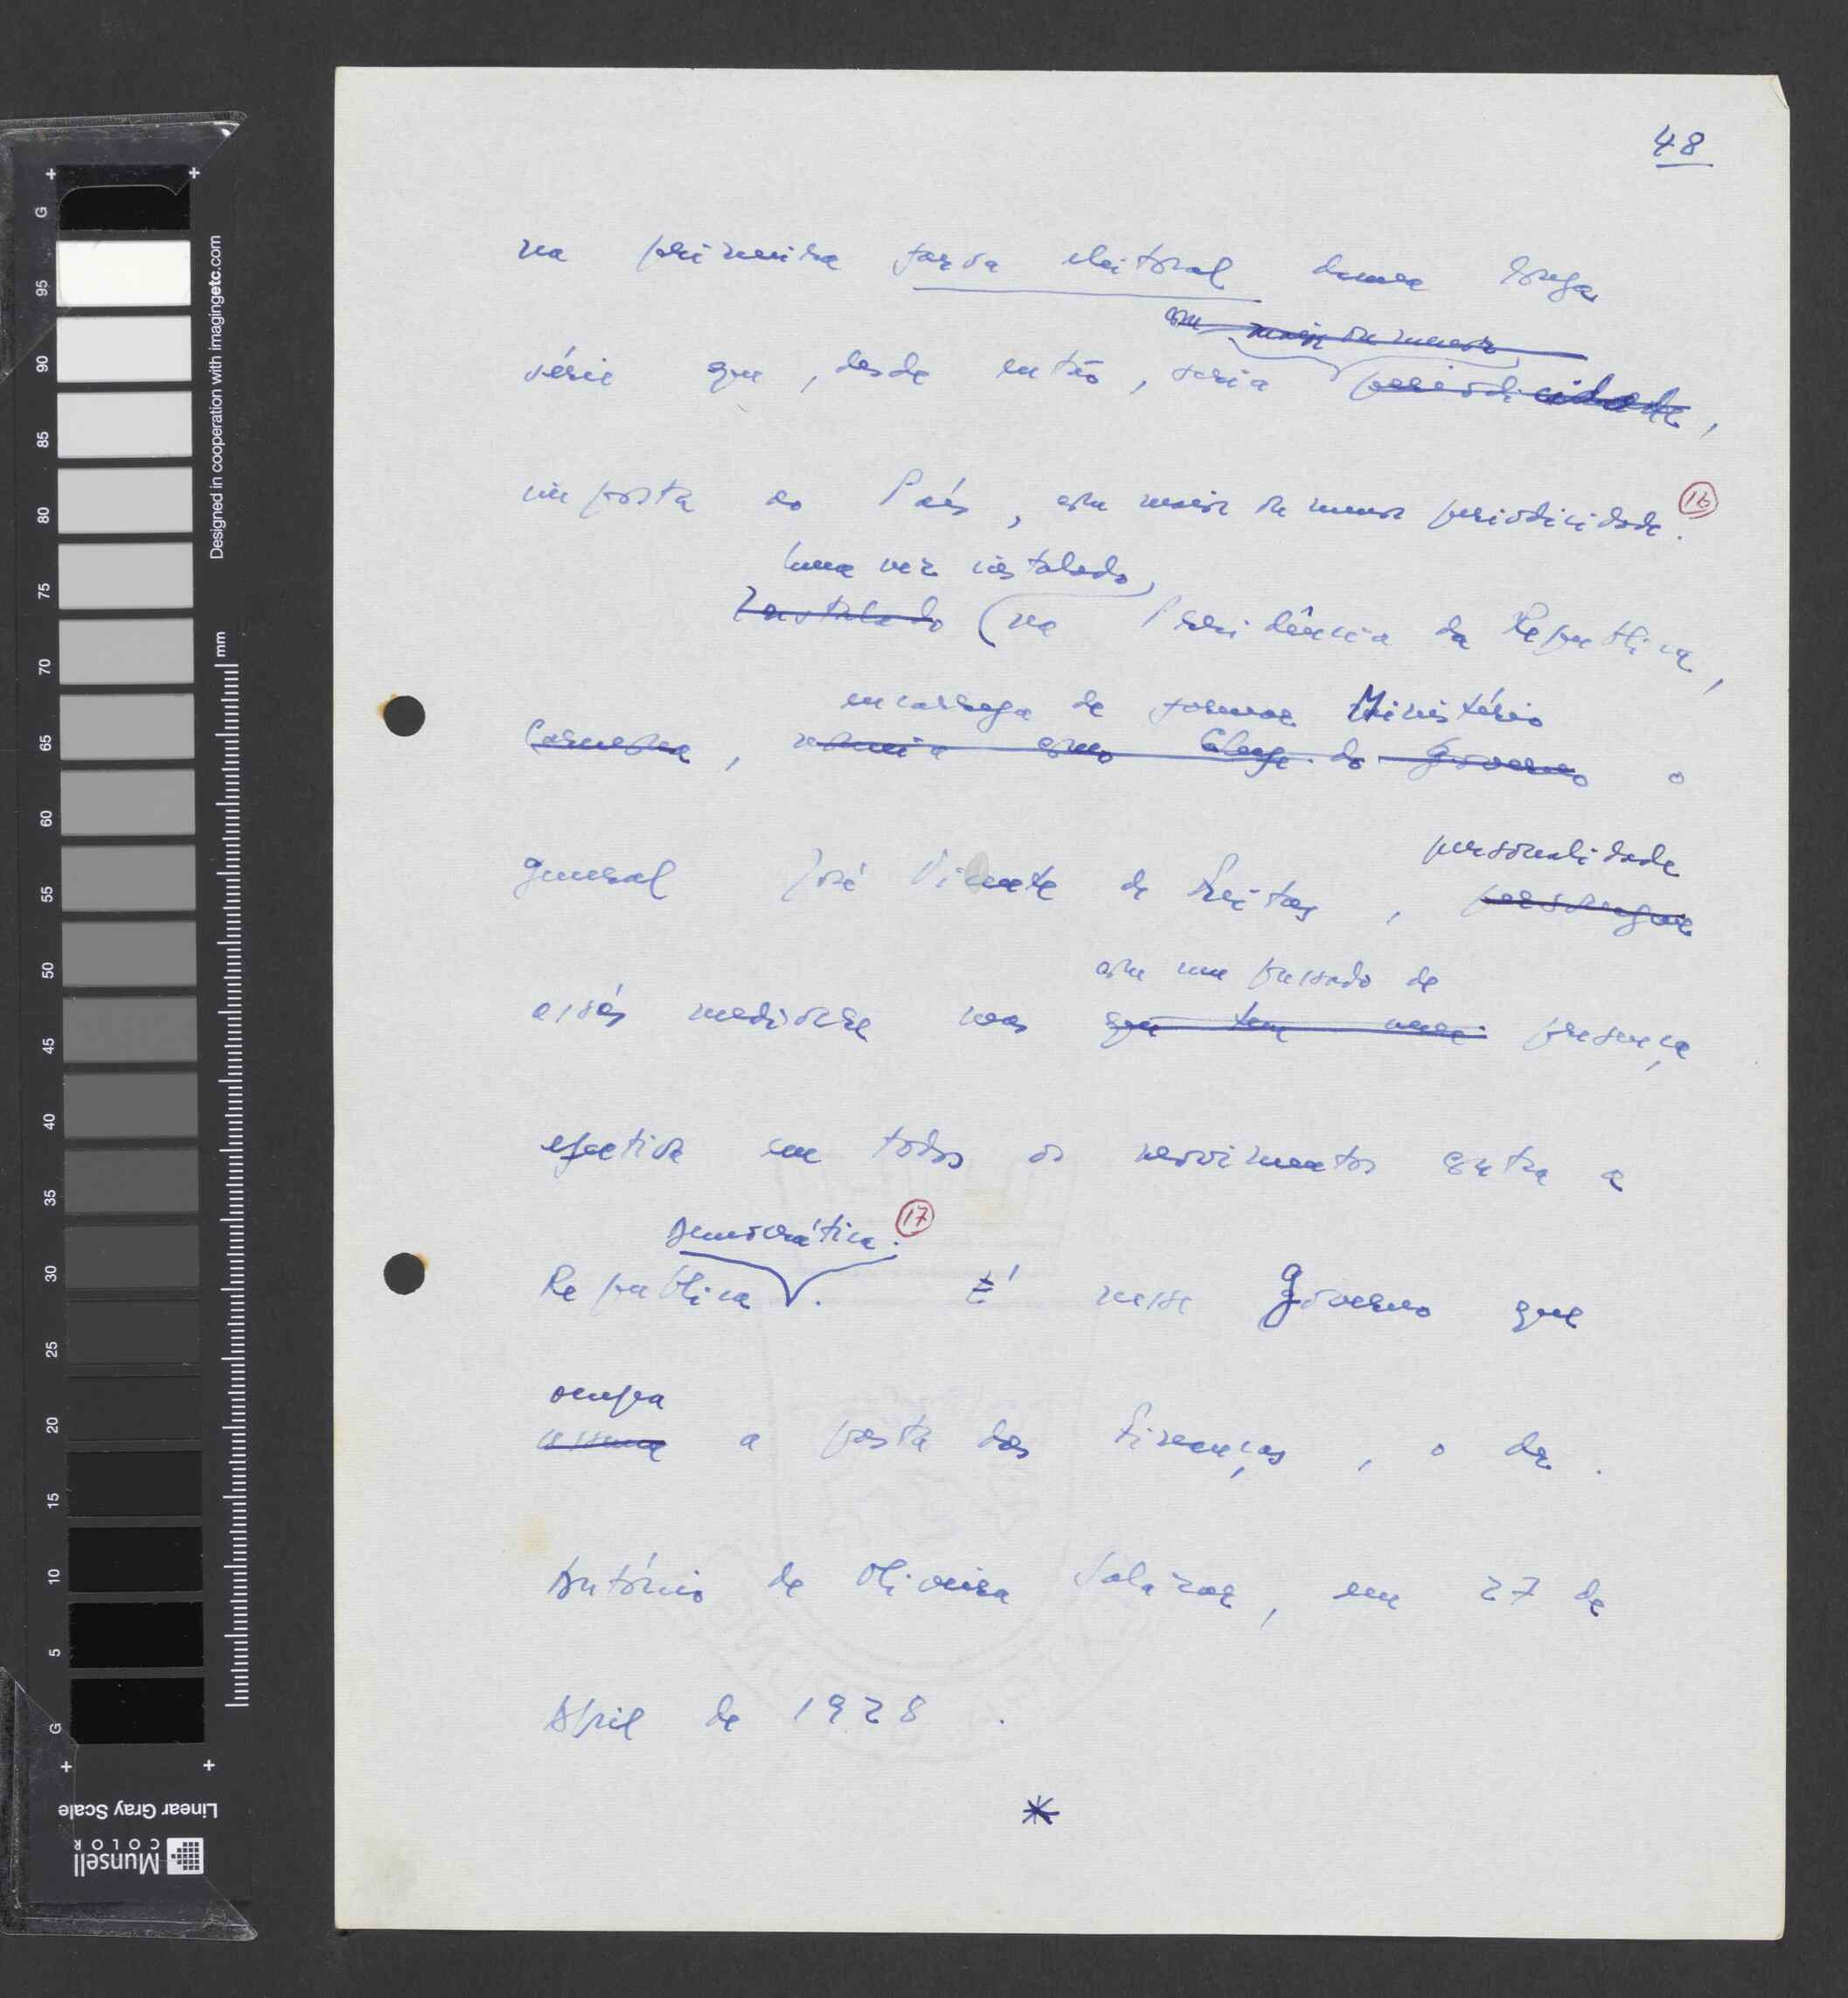 48
na primeira farsa eleitoral duma longa
com maior ou menor
série que, desde então, seria periodicidade,
imposta ao País, com maior ou menor periodicidade. (16)
Uma vez instalado,
Instalado na Presidência da República,
encarrega de formar Ministério
Carmona, nomeia como Chefe do Governo o
personalidade
general José Vicente de Freitas, personagem
com um passado de
assás mediocre mas que tem uma presença
efectiva em todos os movimentos contra a
Democrática. (17)
República. É nesse Governo que
ocupa
assume a pasta das Finanças, o dr.
António de Oliveira Salazar, em 27 de
Abril de 1928.
*
Designed in cooperation with imagingetc.com
mm
G 95 90 85 80 75 70 65 60 55 50 45 40 35 30 25 20 15 10 5 G
Linear Gray Scale
Munsell
COLOR